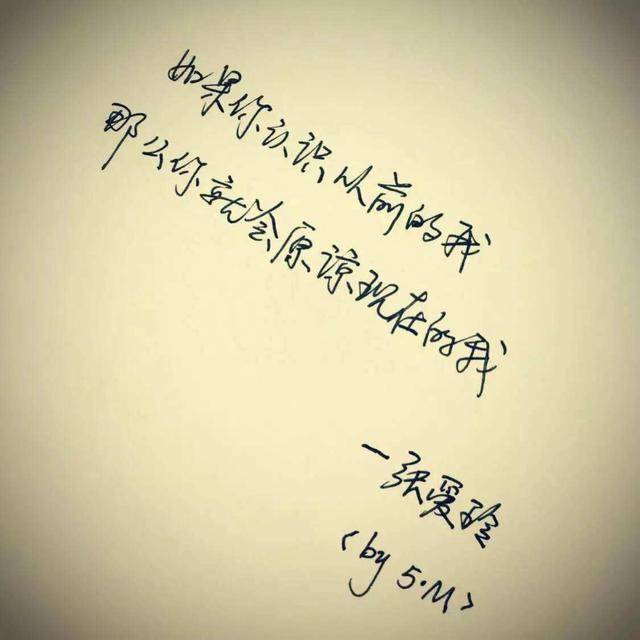 如果你认识以前的我
那么你就会原谅现在的我
一张爱玲
(by S.M)